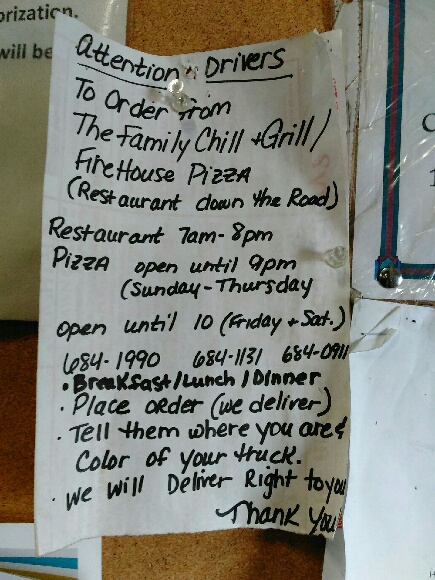 orization.
will be
Attention Drivers
To Order from
The Family Chill + Grill /
FireHouse Pizza
(Restaurant down the Road)
Restaurant 7am-8pm
Pizza open until 9pm
(Sunday-Thursday
open until 10 (Friday + Sat.)
684-1990 684-1131 684-0911
• Breakfast/Lunch/Dinner
• Place order (we deliver)
• Tell them where you are &
Color of your truck.
• We Will Deliver Right to you
Thank You